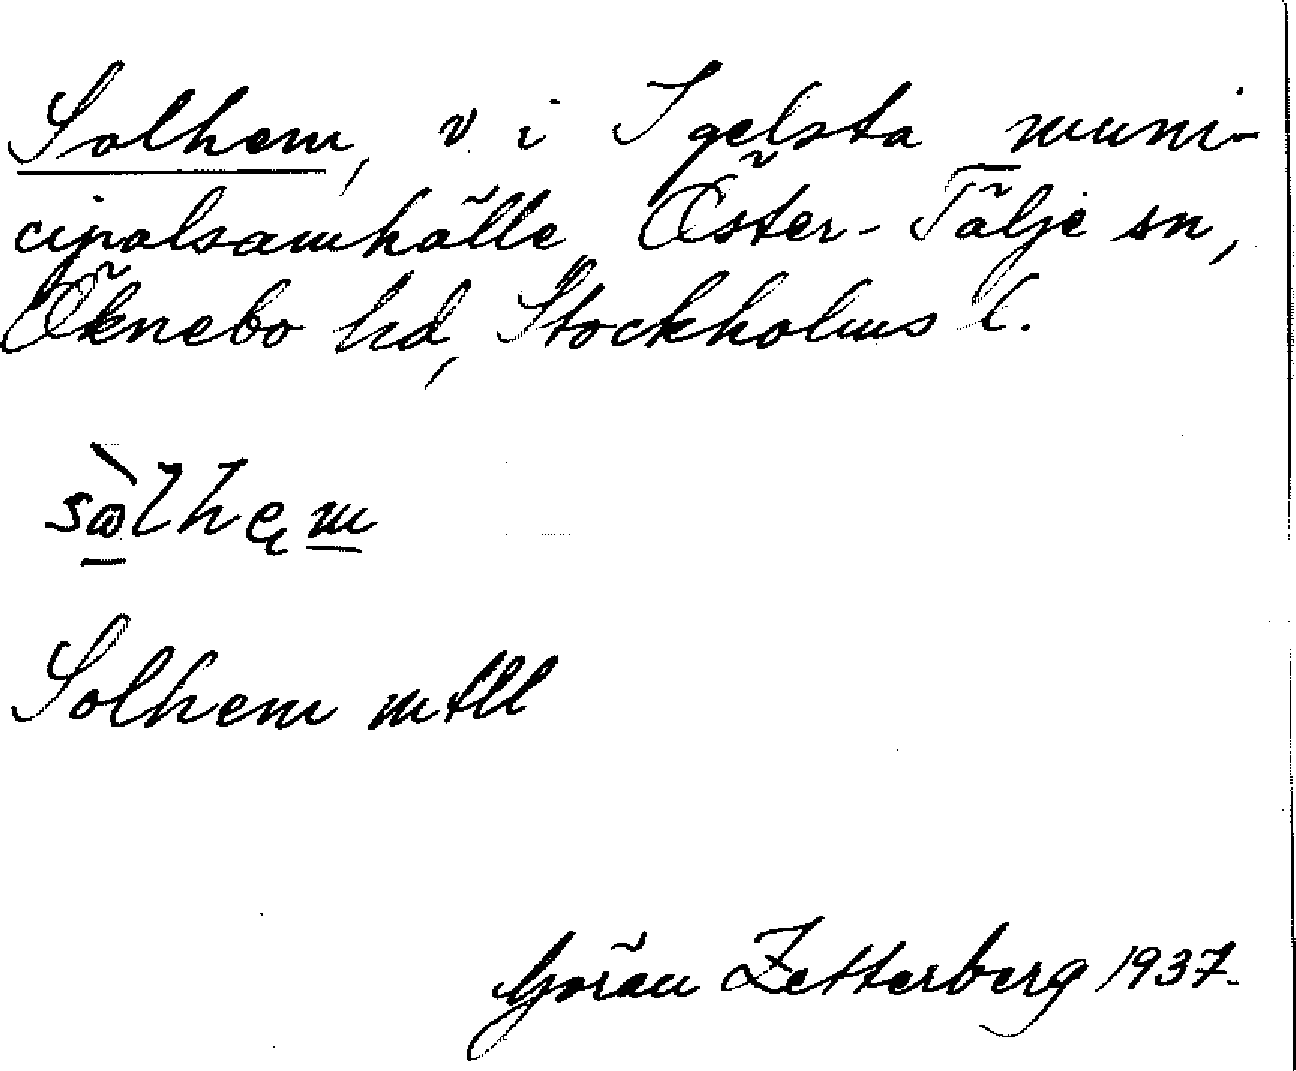 Solhem, v i Igelsta muni-
cipalsamhälle, Öster-Tälje sn,
Öknebo hd, Stockholms l.
sὼlhęm
Solhem mtll
Göran Zetterberg 1937.